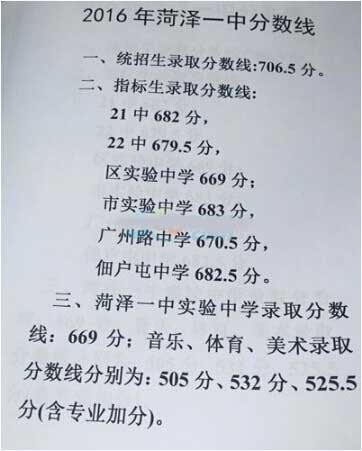 2016年菏泽一中分数线
一、统招生录取分数线:706.5分。
二、指标生录取分数线:
21中682分，
22中679.5分，
区实验中学669分；
市实验中学683分，
广州路中学670.5分，
佃户屯中学682.5分。
三、菏泽一中实验中学录取分数
线：669分；音乐、体育、美术录取
分数线分别为：505分、532分、525.5
分(含专业加分)。